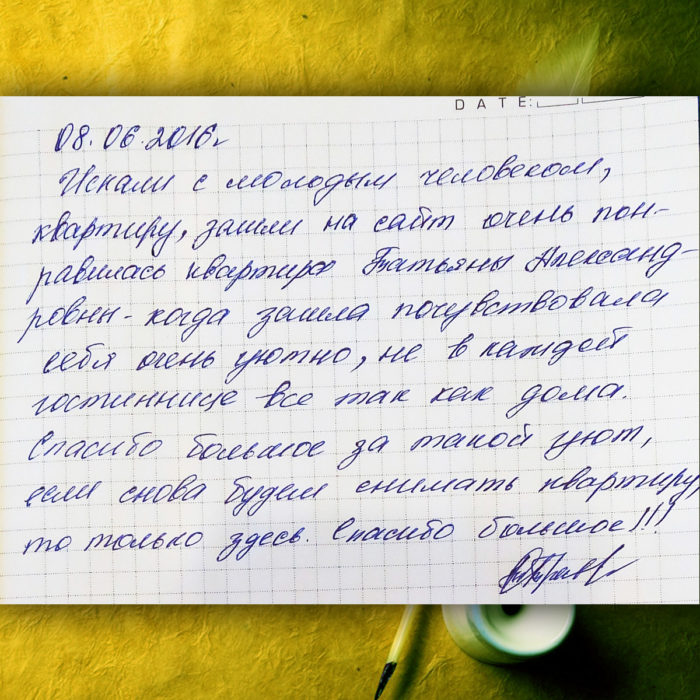 DATE:
08.06.2016г
Искали с молодым человеком,
квартиру, зашли на сайт очень пон-
равилась квартира Татьяны Александ-
ровны - когда зашла почувствовала
себя очень уютно, не в каждой
гостиннице все так как дома.
Спасибо большое за такой уют,
если снова будем снимать квартиру
то только здесь. Спасибо большое!!!